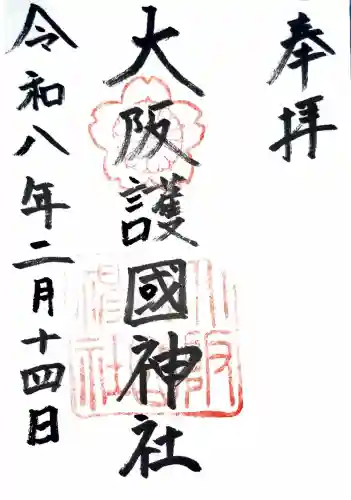 奉拝
大阪護國神社
令和八年二月十四日